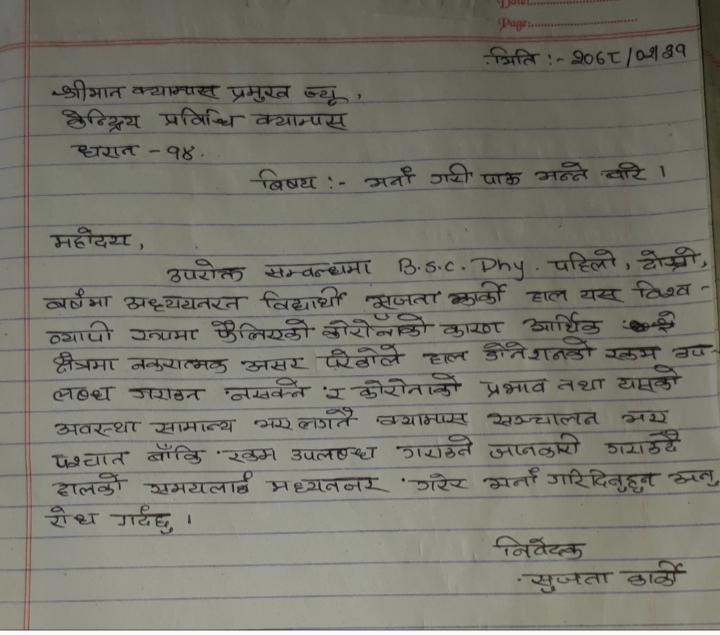 Date:
Page:
मिति :- २०७८/०२/३१
श्रीमान क्याम्पस प्रमुख ज्यू,
केन्द्रिय प्रविधि क्याम्पस
धरान - १४.
बिषय :- भर्ना गरी पाऊ भन्ने बारे ।
महोदय,
उपरोक्त सम्वन्धमा B.S.C. Phy. पहिलो, दोस्रो,
बर्षमा अध्ययनरत विद्यार्थी सुजता कार्की हाल यस विश्व-
व्यापी रुपमा फैलिएको कोरोनाको कारण आर्थिक
क्षेत्रमा नकरात्मक असर परेकोले हाल डोनेशनको रकम उप-
लब्ध गराउन नसक्ने र कोरोनाको प्रभाव तथा यसको
अवस्था सामान्य भए लगत्तै क्याम्पस सञ्चालन भए
पश्चात बाँकि रकम उपलब्ध गराउने जानकारी गराउँदै
हालको समयलाई मध्यनजर गरेर भर्ना गरिदिनुहुन अनु
रोध गर्दछु ।
निवेदक
सुजता कार्की